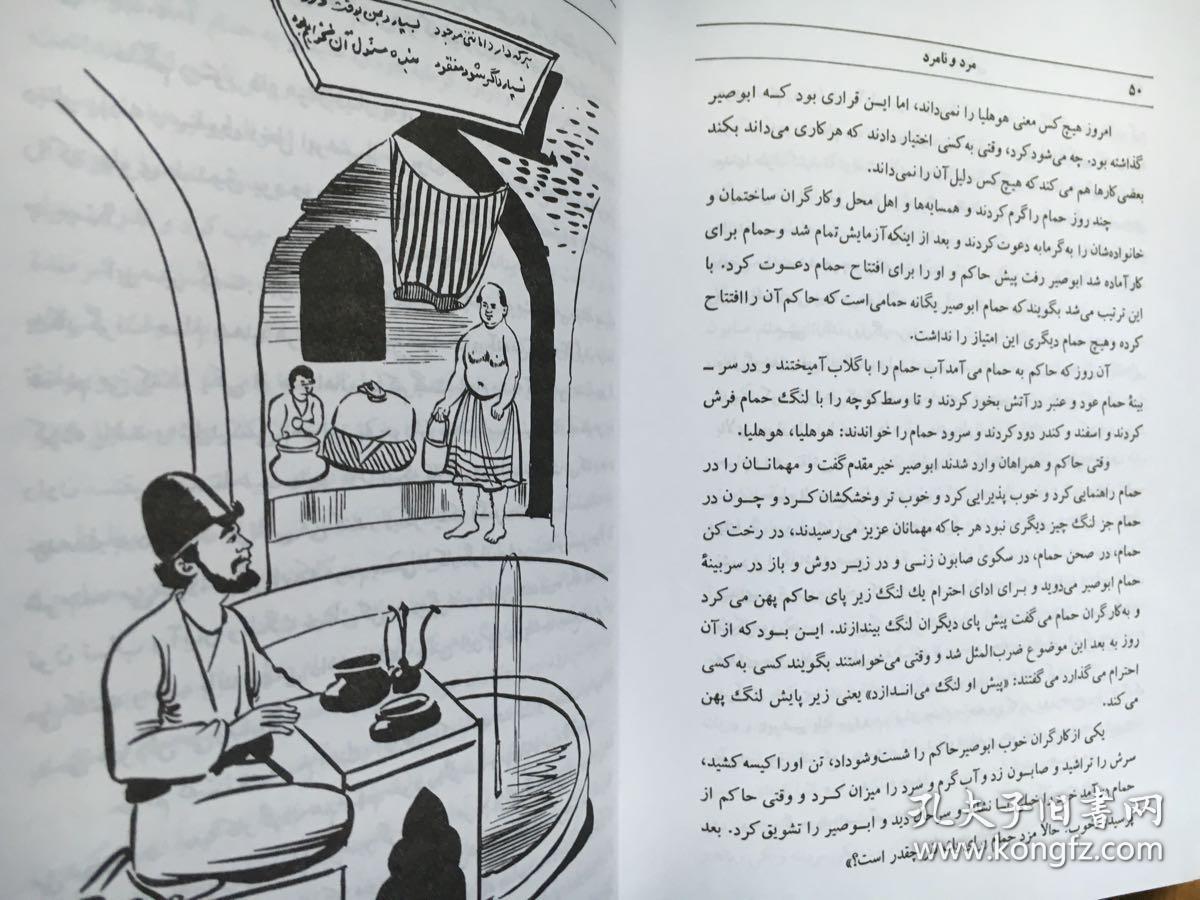 هر که دارد امانتی موجود بسپارد بمن بوقت ورود
نسپارد اگر شود مفقود بنده مسئول آن نخواهم بود
مرد و نامرد
۵۰
امروز هیچ کس معنی هوهلیا را نمی‌داند، اما ایـن قراری بود کـه ابوصیر
گذاشته بود. چه می‌شود کرد، وقتی به‌کسی اختیار دادند که هر کاری می‌داند بکند
بعضی کارها هم می کند که هیچ کس دلیل آن را نمی‌داند.
چند روز حمام را گرم کردند و همسایه‌ها و اهل محل و کارگران ساختمان و
خانواده‌شان را به‌گرمابه دعوت کردند و بعد از اینکه آزمایش تمام شد و حمام برای
کار آماده شد ابوصیر رفت پیش حاکم و او را برای افتتاح حمام دعـوت کرد. با
این ترتیب می‌شد بگویند که حمام ابوصیر یگانه حمامی است که حاکم آن را افتتاح
کرده و هیچ حمام دیگری این امتیاز را نداشت.
آن روز که حاکم به حمام می‌آمد آب حمام را با گلاب آمیختند و در سر ــ
بینهٔ حمام عود و عنبر در آتش بخور کردند و تا وسط کوچه را با لنگ حمام فرش
کردند و اسفند و کندر دود کردند و سرود حمام را خواندند: هوهلیا، هوهلیا.
وقتی حاکم و همراهان وارد شدند ابوصیر خیر مقدم گفت و مهمانـان را در
حمام راهنمایی کرد و خوب پذیرایی کرد و خوب تر و خشکشان کـرد و چـون در
حمام جز لنگ چیز دیگری نبود هر جا که مهمانان عزیز می‌رسیدند، در رخت کن
حمام، در صحن حمام، در سکوی صابون زنـی و در زیـر دوش و باز در سربینهٔ
حمام ابوصیر می‌دوید و بـرای ادای احترام یك لنگ زیر پای حاکم پهن می کرد
و به‌کارگران حمام می‌گفت پیش پای دیگران لنگ بیندازند. ایـن بـود که از آن
روز به بعد این موضوع ضرب‌المثل شد و وقتی می‌خواستند بگویند کسی به کسی
احترام می‌گذارد می گفتند: «پیش او لنگ می انـدازد» یعنی زیر پایش لنگ پهن
می کند.
یکی از کارگران خوب ابوصیر حاکم را شست‌وشو داد، تن او را کیسه کشید،
سرش را تراشید و صابون زد و آب گرم و سرد را میزان کـرد و وقتی حاکم از
حمام در آمد خود را خیلی با نشاط و سر حال دید و ابـوصیر را تشویق کرد. بعد
پرسید: «خوب، حالا مزد حمام برای چقدر است؟»
孔夫子旧书网
www.kongfz.com